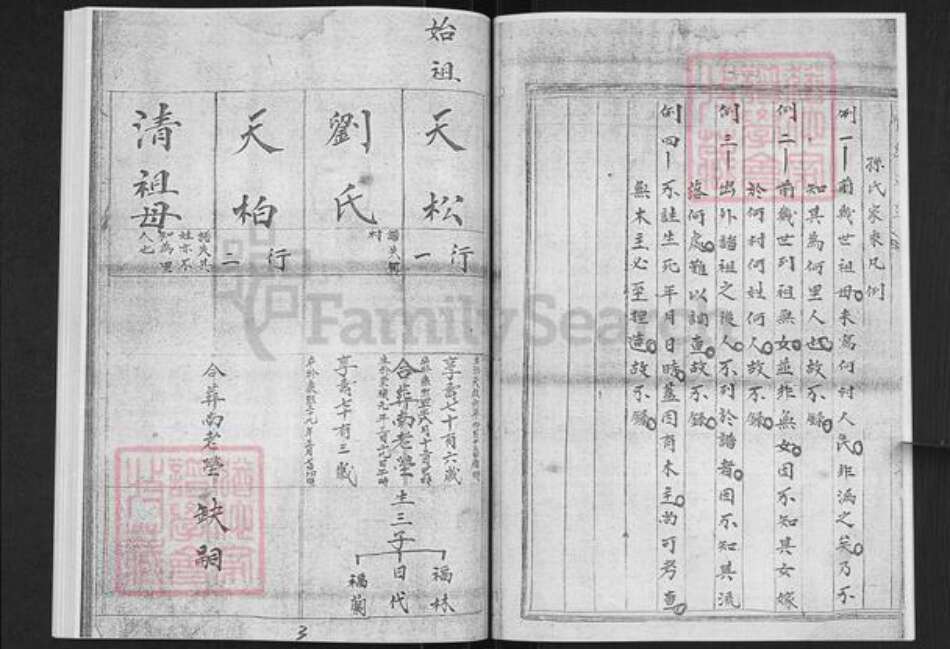 孫氏家乘凡例
例一｜前幾世祖母未寫何村人民非漏之矣乃不
知其為何里人也故不錄
例二｜前幾世列祖無女並非無女因不知其女嫁
於何村何姓何人故不錄
例三｜出外諸祖之後人不列於譜者因不知其流
落何處難以調查故不錄
例四｜不註生死年月日時蓋因有木主的可考查
無木主必至捏造故不錄
始祖
天松
行一
享壽七十有六歲
合葬南老塋
生三子
福林
日代
福蘭
劉氏
譜失何
村
享壽七十有三歲
天柏
行二
清祖母
譜失其
姓亦不
知為里
人也
合葬南老塋缺嗣
3
FamilySearch